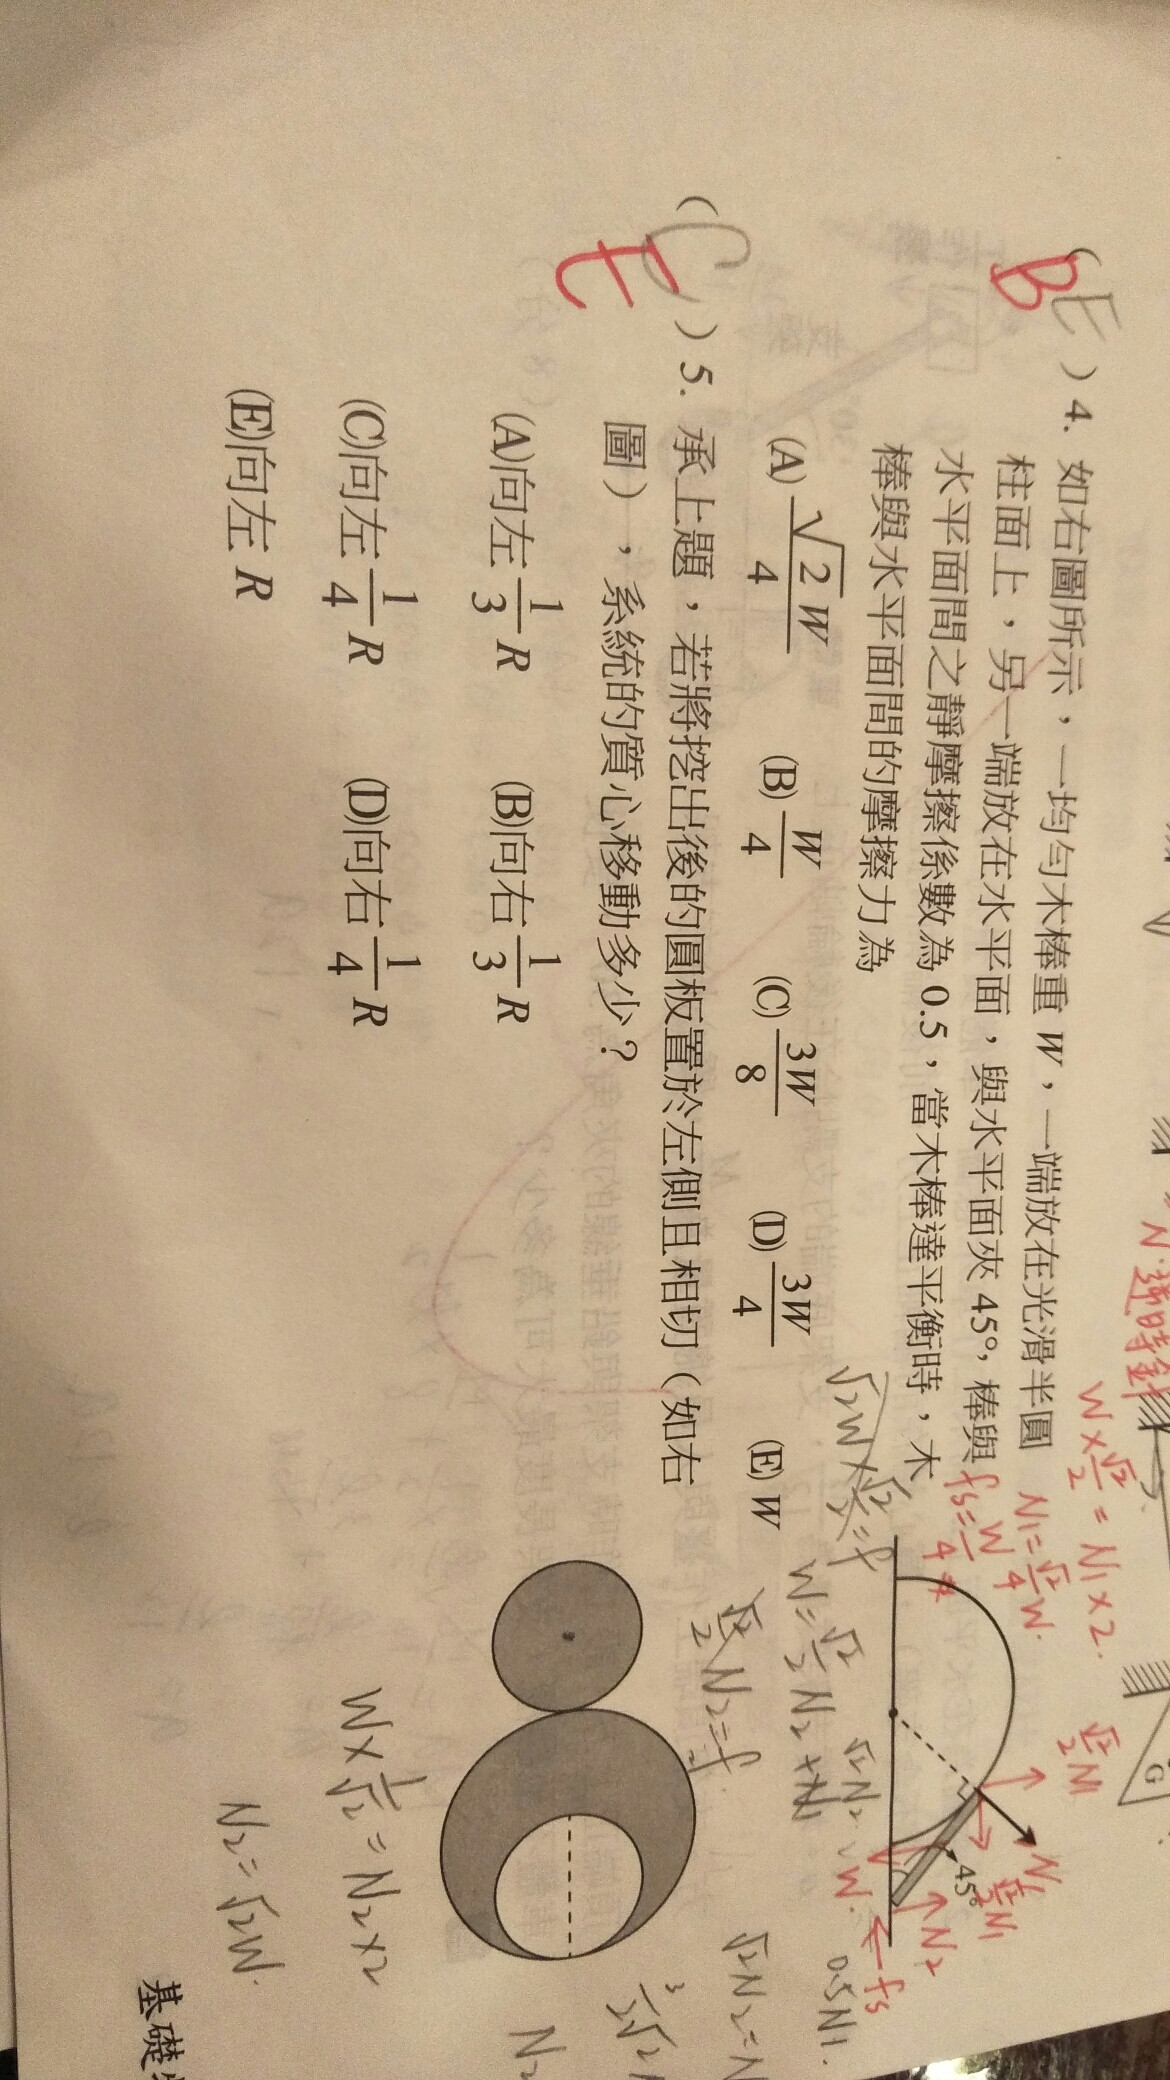 (E)4. 如右圖所示，一均勻木棒重 W，一端放在光滑半圓
B
柱面上，另一端放在水平面，與水平面夾 45°，棒與
水平面間之靜摩擦係數為 0.5，當木棒達平衡時，木
棒與水平面間的摩擦力為
(A) √2W/4 (B) W/4 (C) 3W/8 (D) 3W/4 (E) W
(C)5. 承上題，若將挖出後的圓板置於左側且相切（如右
E
圖），系統的質心移動多少？
(A)向左 1/3 R (B)向右 1/3 R
(C)向左 1/4 R (D)向右 1/4 R
(E)向左 R
N·逆時針
W×√2/2 = N1×2.
N1=√2/4 W.
fs=W/4 #
√2/2 N1
G
N1
√2/2 N1
45°
N2
fs
W
√2W×√2/2=f
W=√2/2 N2+N1
√2/2 N2=f
0.5N1.
W×1/√2=N2×2
N2=√2W.
基礎